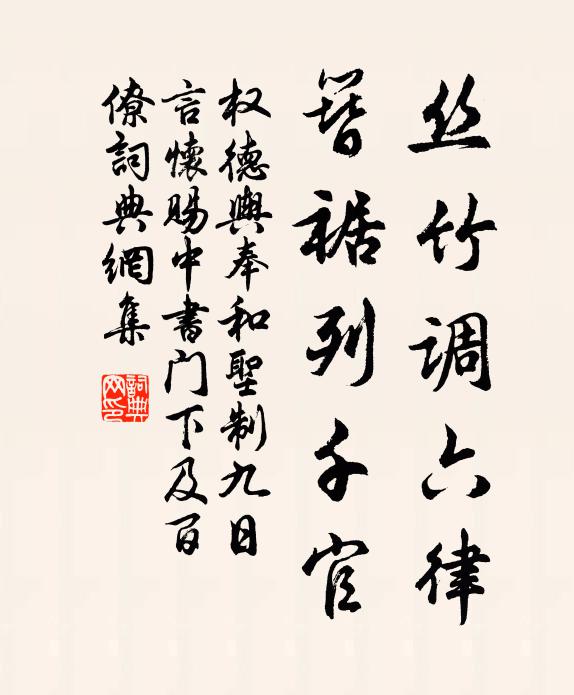 丝竹调六律
簪裾列千官
权德舆奉和聖制九日
言懷賜中書门下及百
僚詞典網集
詞典网印